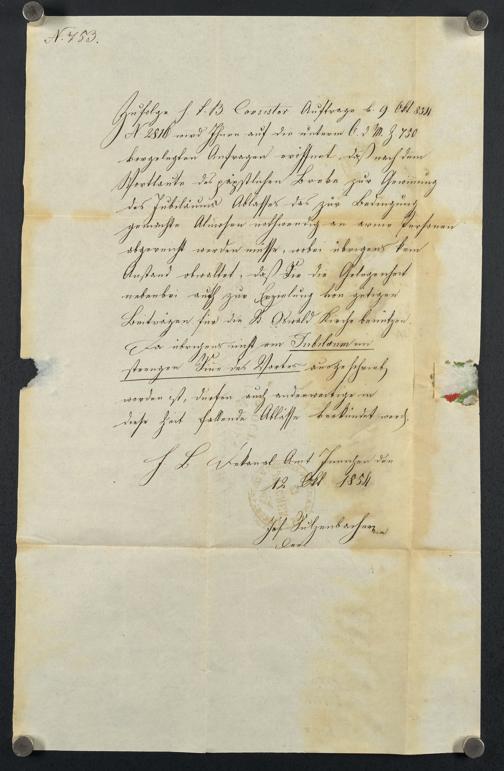 N. 753.
Zufolge f. b. B. Consistor. Auftrags v. 9 Okt. 854
N 2818 wird Ihnen auf die unterm 6. d. M. Z 730
vorgelegten Anfragen eröffnet, daß nach dem
Wortlaute des päpstlichen Breve zur Gewinnung
des Jubiläums Ablasses das zur Bedingung
gemachte Almosen nothwendig an arme Personen
abgereicht werden müsse, wobei übrigens kein
Anstand obwaltet, daß Sie die Gelegenheit
nebenbei auch zur Erzielung von gütigen
Beiträgen für die St Oswald Kirche benützen.
Da übrigens nicht ein Jubiläum im
strengen Sinne des Wortes ausgeschrieben
worden ist, dürfen auch anderweitige in
diese Zeit fallende Ablässe verkündet werden.
F. B. Dekanal Amt Innichen den
12 Okt 1854
Jos. Sulzenbacher